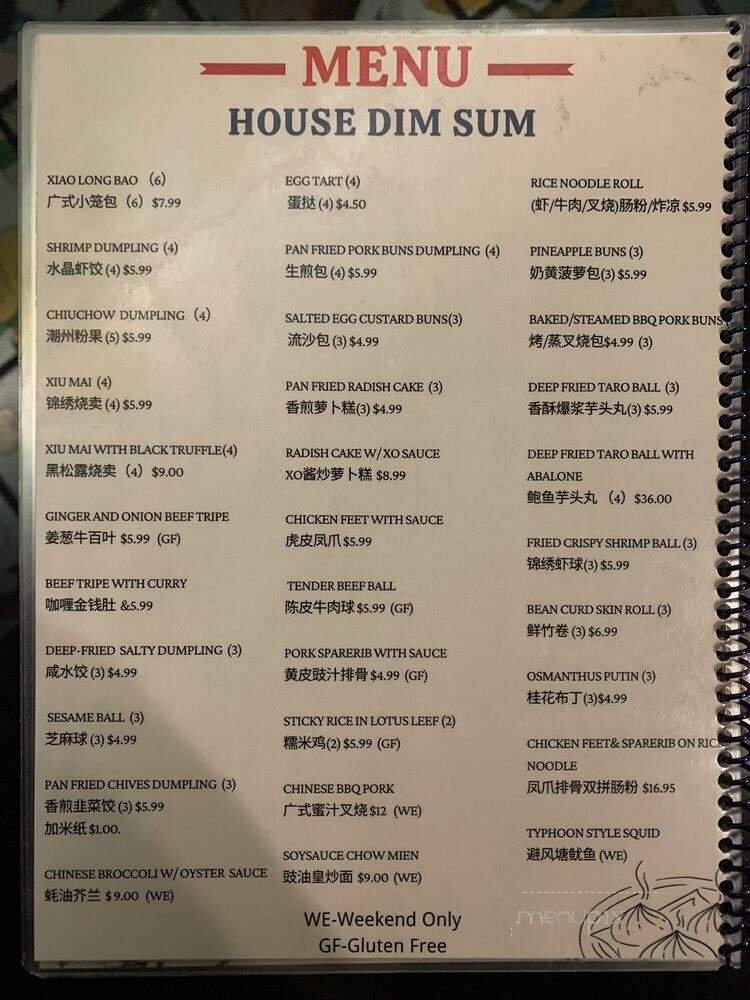 MENU
HOUSE DIM SUM
XIAO LONG BAO （6）
广式小笼包（6）$7.99
SHRIMP DUMPLING (4)
水晶虾饺 (4) $5.99
CHIUCHOW DUMPLING （4）
潮州粉果 (5) $5.99
XIU MAI (4)
锦绣烧卖 (4) $5.99
XIU MAI WITH BLACK TRUFFLE(4)
黑松露烧卖（4）$9.00
GINGER AND ONION BEEF TRIPE
姜葱牛百叶 $5.99 (GF)
BEEF TRIPE WITH CURRY
咖喱金钱肚 &5.99
DEEP-FRIED SALTY DUMPLING (3)
咸水饺 (3) $4.99
SESAME BALL (3)
芝麻球 (3) $4.99
PAN FRIED CHIVES DUMPLING (3)
香煎韭菜饺 (3) $5.99
加米纸 $1.00.
CHINESE BROCCOLI W/ OYSTER SAUCE
蚝油芥兰 $ 9.00 (WE)
EGG TART (4)
蛋挞 (4) $4.50
PAN FRIED PORK BUNS DUMPLING (4)
生煎包 (4) $5.99
SALTED EGG CUSTARD BUNS(3)
流沙包 (3) $4.99
PAN FRIED RADISH CAKE (3)
香煎萝卜糕(3) $4.99
RADISH CAKE W/XO SAUCE
XO酱炒萝卜糕 $8.99
CHICKEN FEET WITH SAUCE
虎皮凤爪 $5.99
TENDER BEEF BALL
陈皮牛肉球 $5.99 (GF)
PORK SPARERIB WITH SAUCE
黄皮豉汁排骨 $4.99 (GF)
STICKY RICE IN LOTUS LEEF (2)
糯米鸡(2) $5.99 (GF)
CHINESE BBQ PORK
广式蜜汁叉烧 $12 (WE)
SOYSAUCE CHOW MIEN
豉油皇炒面 $9.00 (WE)
RICE NOODLE ROLL
(虾/牛肉/叉烧)肠粉/炸凉 $5.99
PINEAPPLE BUNS (3)
奶黄菠萝包(3) $5.99
BAKED/STEAMED BBQ PORK BUNS
烤/蒸叉烧包$4.99 (3)
DEEP FRIED TARO BALL (3)
香酥爆浆芋头丸(3) $5.99
DEEP FRIED TARO BALL WITH
ABALONE
鲍鱼芋头丸 （4）$36.00
FRIED CRISPY SHRIMP BALL (3)
锦绣虾球(3) $5.99
BEAN CURD SKIN ROLL (3)
鲜竹卷 (3) $6.99
OSMANTHUS PUTIN (3)
桂花布丁(3)$4.99
CHICKEN FEET& SPARERIB ON RICE
NOODLE
凤爪排骨双拼肠粉 $16.95
TYPHOON STYLE SQUID
避风塘鱿鱼 (WE)
WE-Weekend Only
GF-Gluten Free
menupix